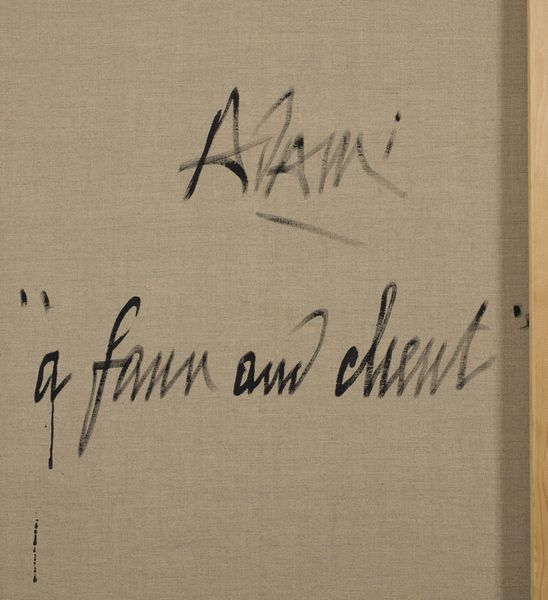 Adami
"a faun and client"